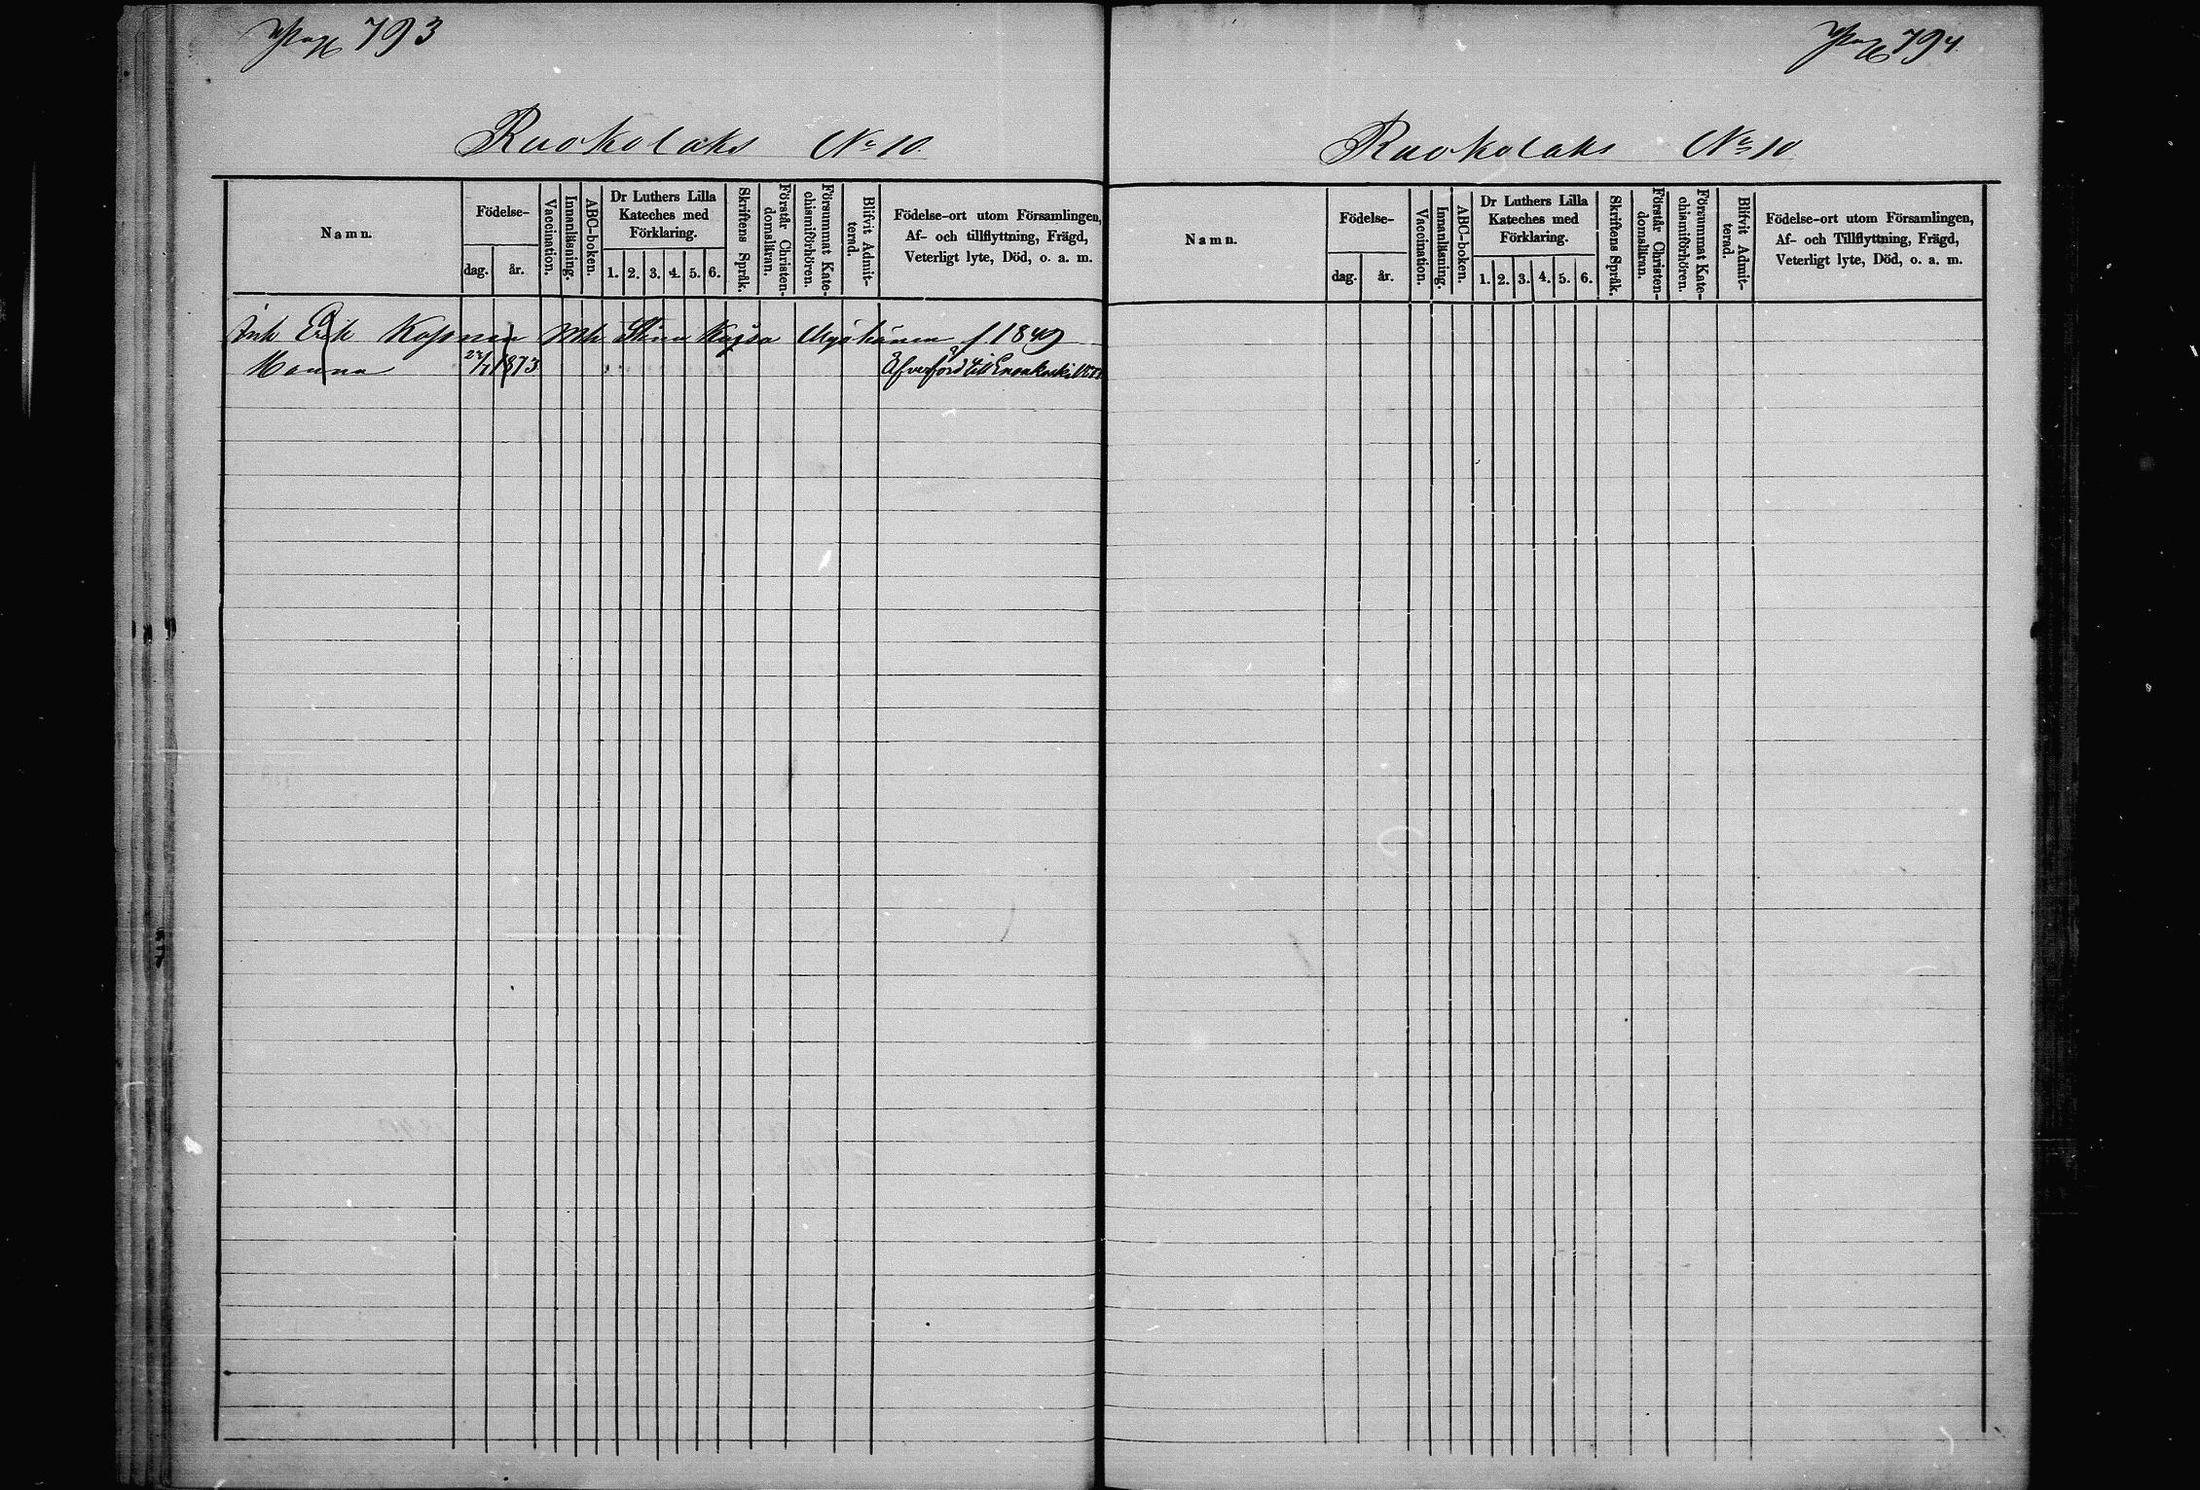 Pag 793
Ruokolaks No 10
Namn.
Födelse-
dag.
år.
Vaccination.
Innanläsning.
ABC-boken.
Dr Luthers Lilla
Kateches med
Förklaring.
1. 2. 3. 4. 5. 6.
Skriftens Språk.
Förstår Christen-
domsläran.
Försummat Kate-
chismiförhören.
Blifvit Admit-
terad.
Födelse-ort utom Församlingen,
Af- och tillflyttning, Frägd,
Veterligt lyte, Död, o. a. m.
Erik Mh Stina Kajsa f 1849
Hanna 1873 Öfverförd till Enonkoski
Pag 794
Ruokolaks No 10
Namn.
Födelse-
dag.
år.
Vaccination.
Innanläsning.
ABC-boken.
Dr Luthers Lilla
Kateches med
Förklaring.
1. 2. 3. 4. 5. 6.
Skriftens Språk.
Förstår Christen-
domsläran.
Försummat Kate-
chismiförhören.
Blifvit Admit-
terad.
Födelse-ort utom Församlingen,
Af- och Tillflyttning, Frägd,
Veterligt lyte, Död, o. a. m.